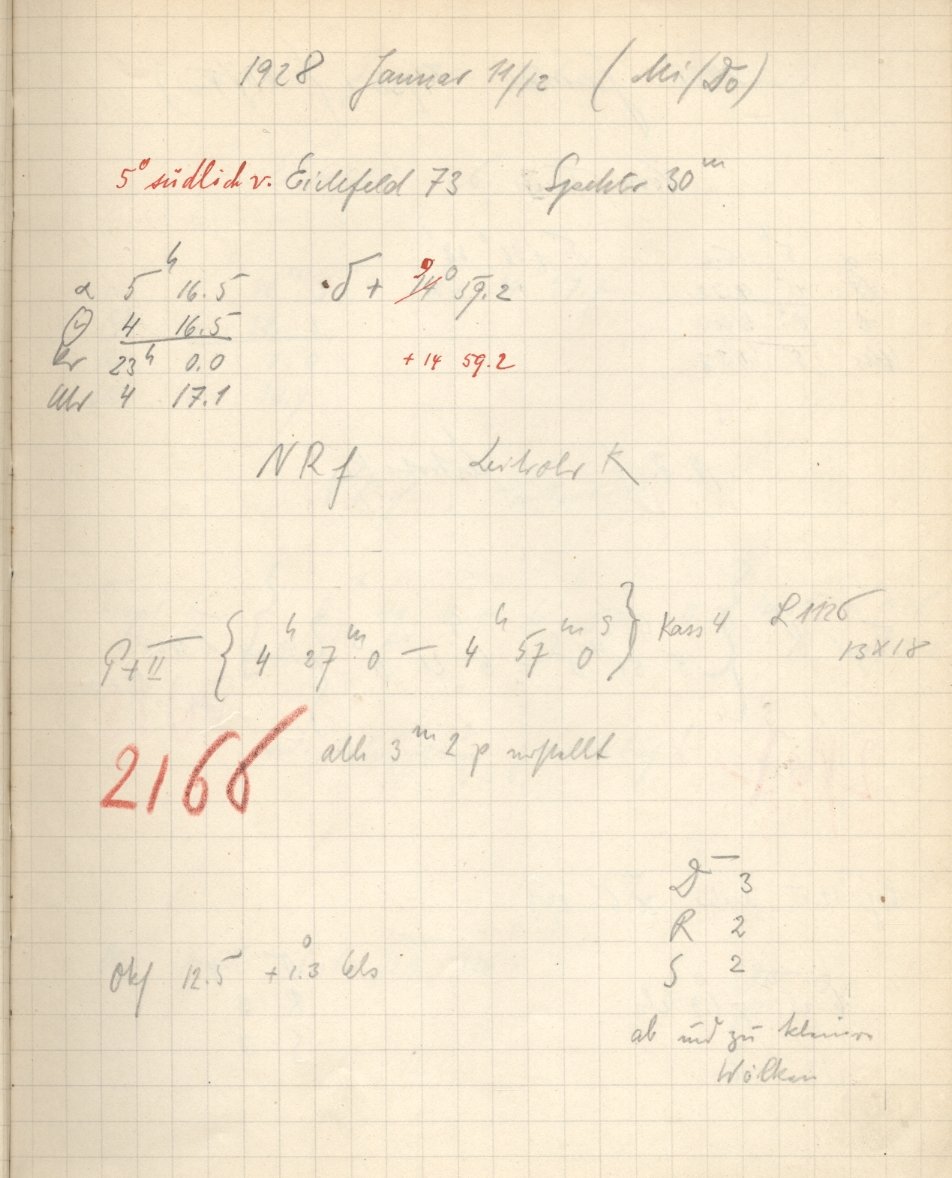 1928 Januar 11/12 (Mi/Do)
5° südlich v. Eichfeld 73 Spektr 30ᵐ
α 5ʰ 16.5 δ + 9° 59.2
4 16.5
23ʰ 0.0 + 14 59.2
Uhr 4 17.1
NRf Leitrohr K
P+II { 4ʰ 27ᵐ 0 — 4ʰ 57ᵐ 0ˢ } Kass 4 L 1126
13×18
2166 alle 3ᵐ 2 p verstellt
D 3
R 2
S 2
Okf 12.5 +1.3° Cels
ab und zu kleine
Wolken